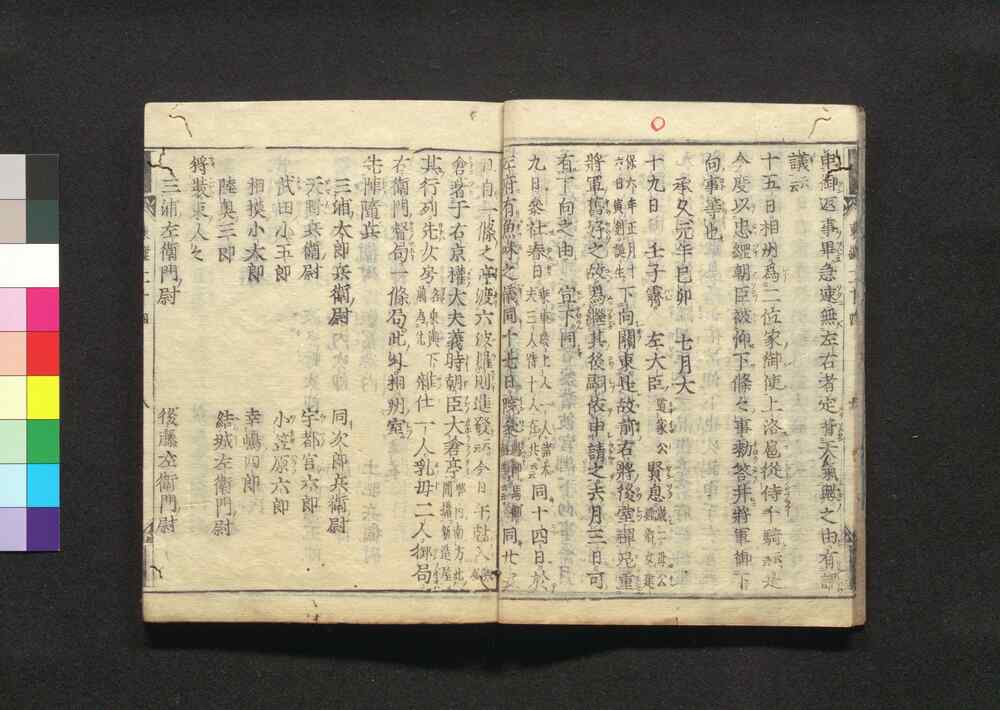 申御返事畢急速無左右者定背天氣歟之由有評
議云云
十五日相州爲二位家御使上洛扈從侍千騎云云是
今度以忠綱朝臣被仰下條々事勅答并將軍御下
向事等也
承久元年己卯　七月大
十九日　壬子霽　左大臣道家公賢息二歳母公
保六年正月十六日寅剋誕生下向關東是故前右將後室禪尼重
將軍舊好之故爲繼其後嗣依申請之去月三日可
有下向之由　宣下同
九日參社春日同十四日於
左府有魚味之儀同十七日院參同廿五
日自一條之亭渡六波羅則進發云云今日午剋入鎌
倉著于右京權大夫義時朝臣大倉亭
其行列先女房各乘輿下臈爲先雜仕一人乳母二人御局
右衛門督局一條局此外相州室
先陣隨兵
三浦太郎兵衛尉　同次郎兵衛尉
天野兵衛尉　宇都宮六郎
武田小五郎　小笠原六郎
相模小太郎　幸嶋四郎
陸奧三郎　結城左衛門尉
狩裝束人々
三浦左衛門尉　後藤左衛門尉